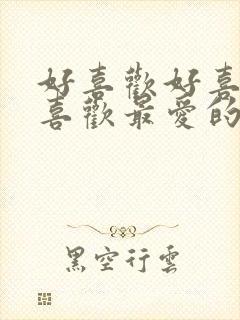 好喜歡好喜
喜歡最愛的
黑空行雲